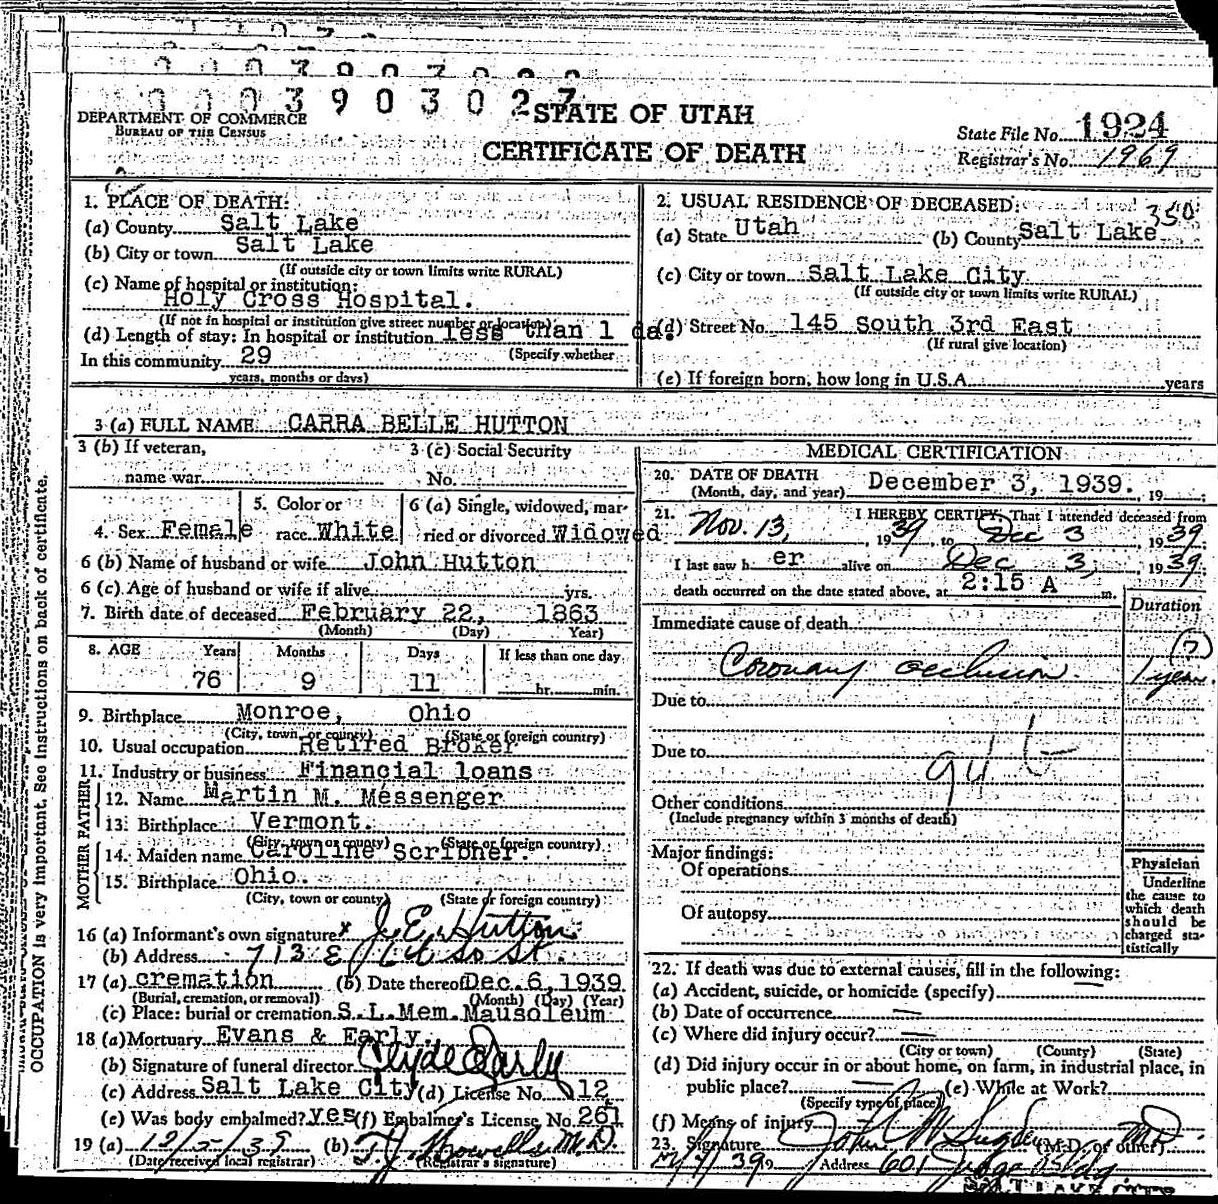 0003903027
STATE OF UTAH
DEPARTMENT OF COMMERCE
BUREAU OF THE CENSUS
CERTIFICATE OF DEATH
State File No. 1924
Registrar's No. 1969
1. PLACE OF DEATH:
(a) County Salt Lake
(b) City or town Salt Lake
(If outside city or town limits write RURAL)
(c) Name of hospital or institution:
Holy Cross Hospital.
(If not in hospital or institution give street number or location)
(d) Length of stay: In hospital or institution less than 1 da.
In this community 29 (Specify whether
years, months or days)
2. USUAL RESIDENCE OF DECEASED: 350
(a) State Utah (b) County Salt Lake
(c) City or town Salt Lake City
(If outside city or town limits write RURAL)
(d) Street No. 145 South 3rd East
(If rural give location)
(e) If foreign born, how long in U.S.A. years
3 (a) FULL NAME CARRA BELLE HUTTON
3 (b) If veteran, 3 (c) Social Security
name war No.
4. Sex Female 5. Color or race White 6 (a) Single, widowed, married or divorced Widowed
6 (b) Name of husband or wife John Hutton
6 (c) Age of husband or wife if alive yrs.
7. Birth date of deceased February 22, 1863
(Month) (Day) Year)
8. AGE Years Months Days If less than one day
76 9 11 hr. min.
9. Birthplace Monroe, Ohio
(City, town, or county) (State or foreign country)
10. Usual occupation Retired Broker
11. Industry or business Financial loans
FATHER
12. Name Martin M. Messenger
13. Birthplace Vermont.
(City, town or county) (State or foreign country)
MOTHER
14. Maiden name Caroline Scribner.
15. Birthplace Ohio.
(City, town or county) (State or foreign country)
16 (a) Informant's own signature x J. E. Hutton
(b) Address 713 E 6th So St.
17 (a) cremation (b) Date thereof Dec. 6, 1939
(Burial, cremation, or removal) (Month) (Day) (Year)
(c) Place: burial or cremation S. L. Mem. Mausoleum
18 (a) Mortuary Evans & Early,
(b) Signature of funeral director Clyde Early
(c) Address Salt Lake City (d) License No. 12
(e) Was body embalmed? yes (f) Embalmer's License No. 261
19 (a) 12/5/39 (b) T. J. Howells M.D.
(Date received local registrar) (Registrar's signature)
MEDICAL CERTIFICATION
20. DATE OF DEATH
(Month, day, and year) December 3, 1939. , 19
21. I HEREBY CERTIFY, That I attended deceased from
Nov. 13, , 1939, to Dec 3 , 1939.
I last saw h er alive on Dec 3, , 1939.
death occurred on the date stated above, at 2:15 A m.
Duration
Immediate cause of death
(?)
Coronary occlusion. 1 year.
Due to
Due to
94 b
Other conditions
(Include pregnancy within 3 months of death)
Major findings:
Of operations
Of autopsy
Physician
Underline
the cause to
which death
should be
charged sta-
tistically
22. If death was due to external causes, fill in the following:
(a) Accident, suicide, or homicide (specify)
(b) Date of occurrence
(c) Where did injury occur?
(City or town) (County) (State)
(d) Did injury occur in or about home, on farm, in industrial place, in
public place? (e) While at Work?
(Specify type of place)
(f) Means of injury
23. Signature John W Sugden (M.D. or other) M.D.
Address 601 Judge Bldg
SALT LAKE CITY
OCCUPATION is very important. See instructions on back of certificate.